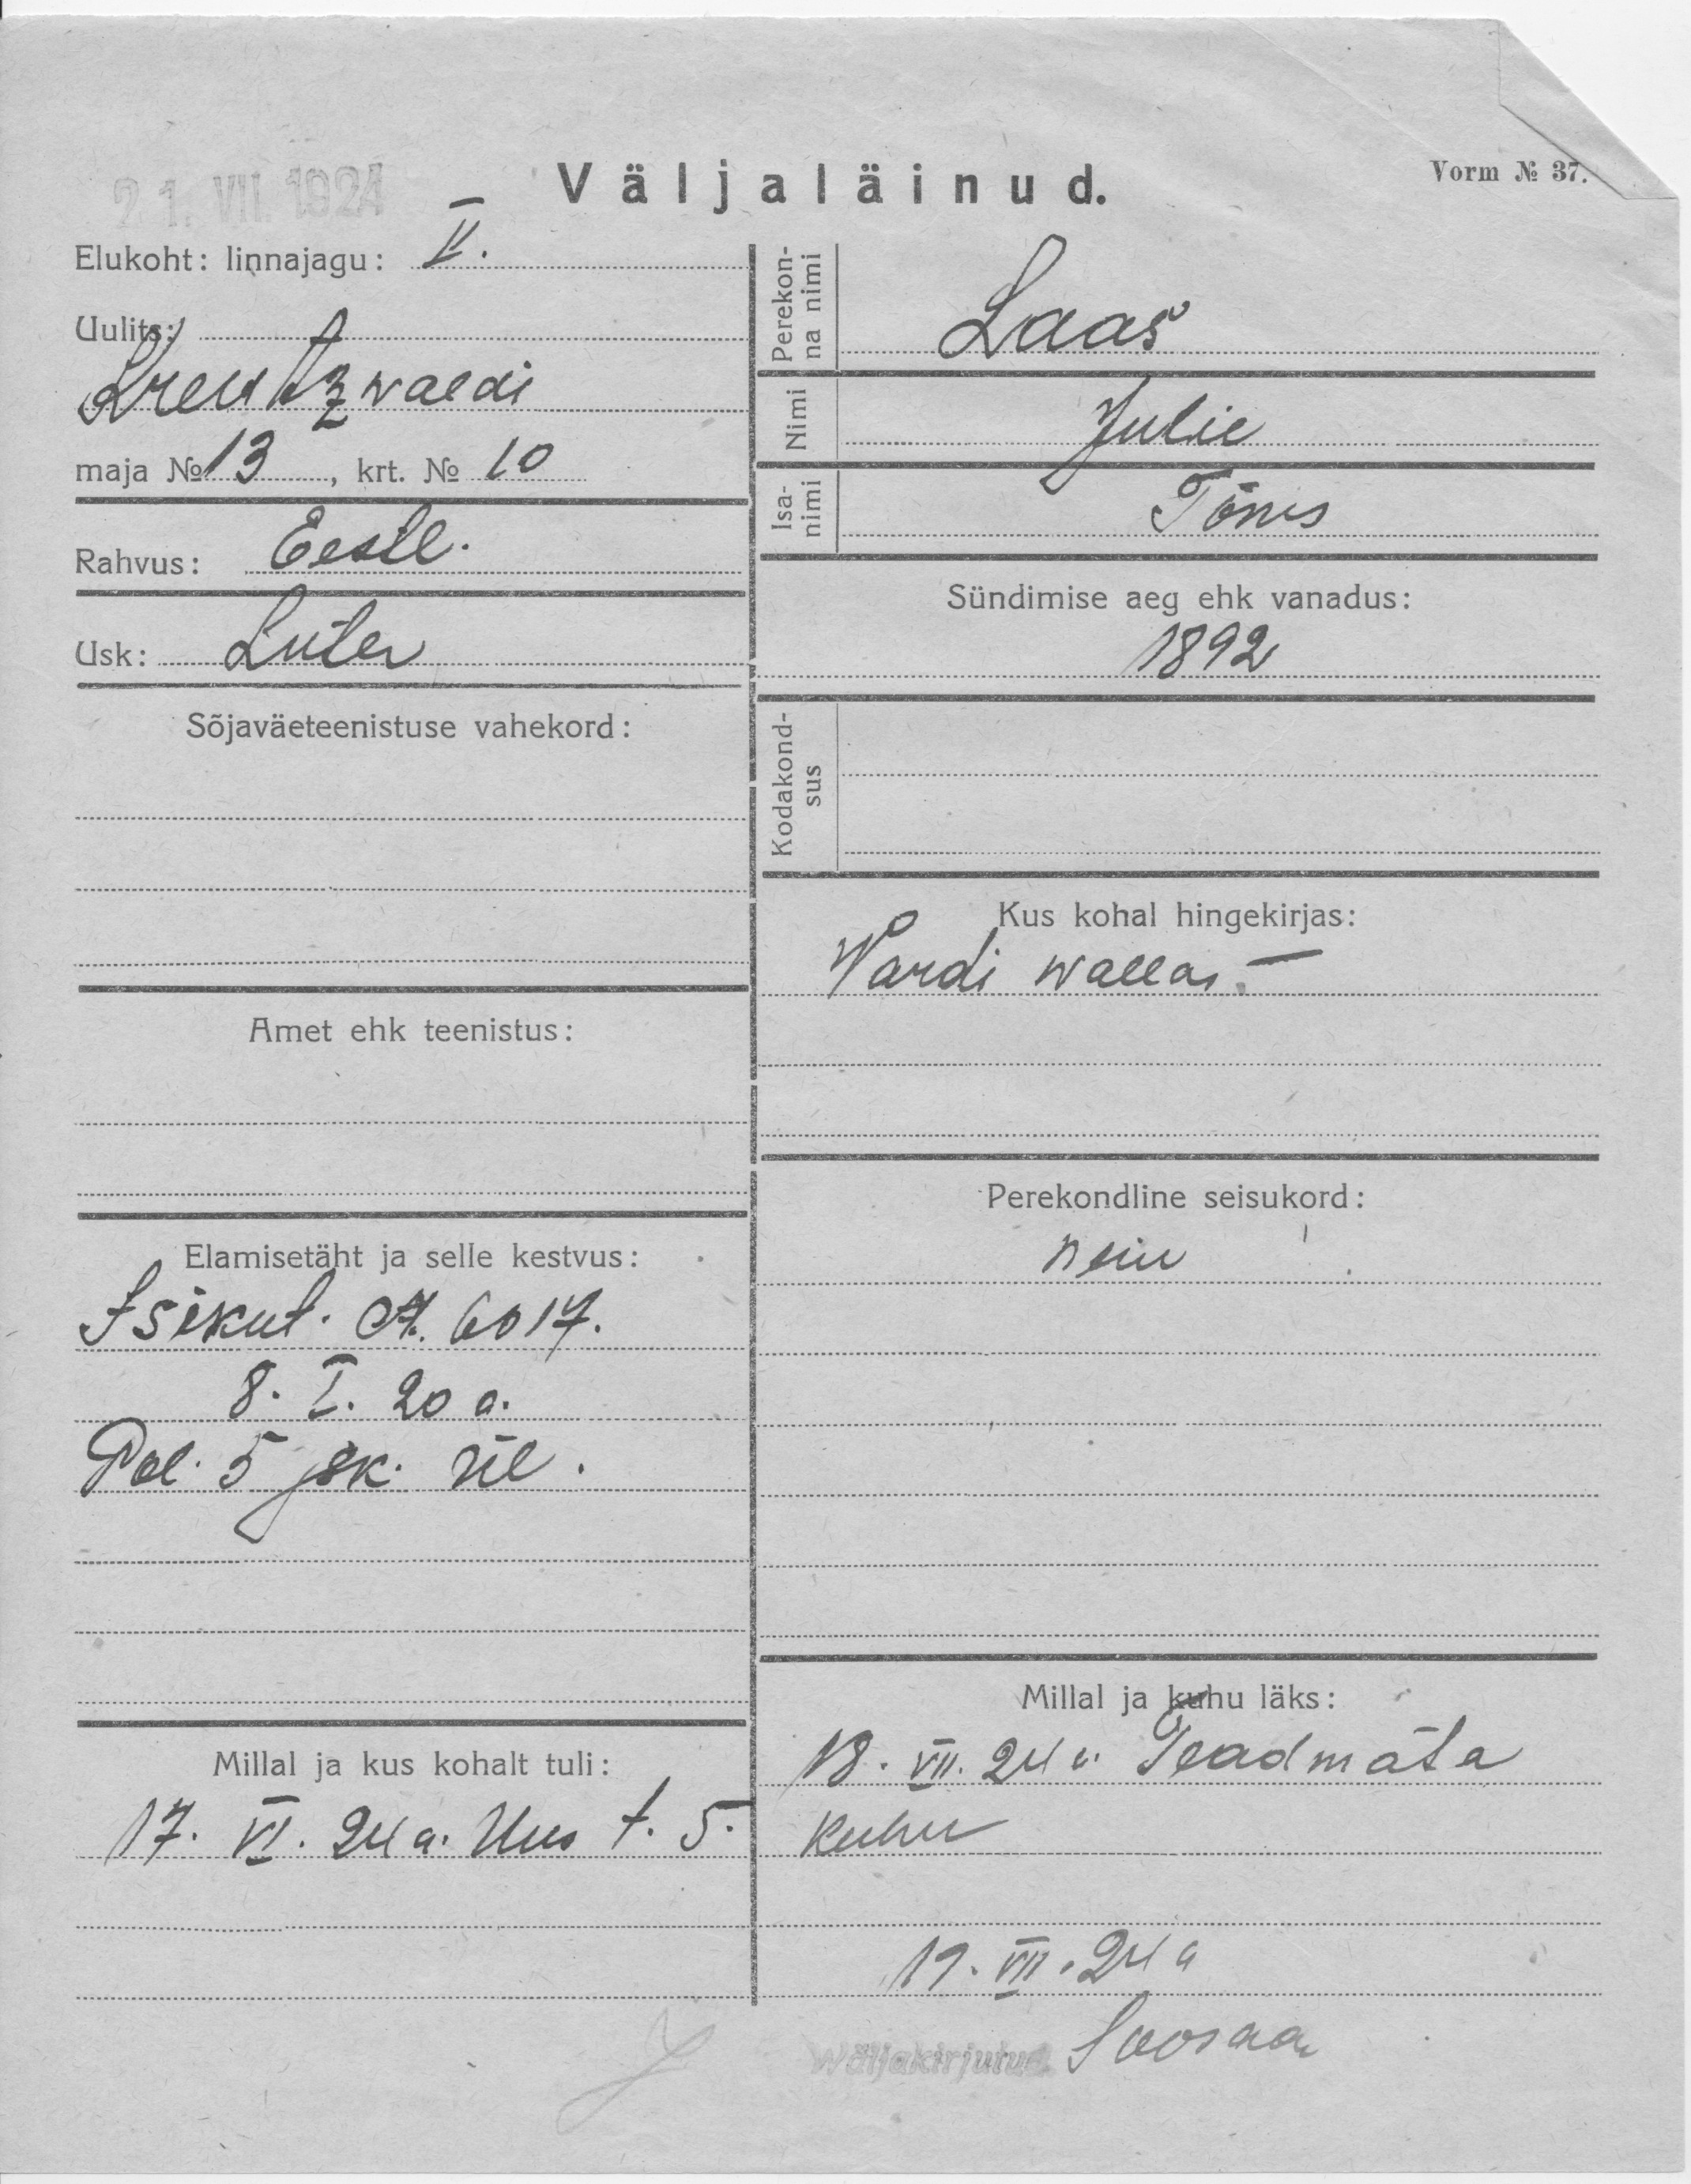 21. VII 1924
Väljaläinud.
Vorm № 37.
Elukoht: linnajagu: V.
Uulits:
Kreutzwaldi
maja № 13, krt. № 10
Rahvus: Eestl.
Usk: Luter
Sõjaväeteenistuse vahekord:
Amet ehk teenistus:
Elamisetäht ja selle kestvus:
Isikut. A. 6017.
8. I. 20 a.
Pol. 5 jsk. ül.
Millal ja kus kohalt tuli:
17. VI. 24 a. Uus t. 5.
Perekon-
na nimi
Laas
Nimi
Julie
Isa-
nimi
Tõnis
Sündimise aeg ehk vanadus:
1892
Kodakond-
sus
Kus kohal hingekirjas:
Wardi wallas.
Perekondline seisukord:
neiu
Millal ja kuhu läks:
18. VII. 24 a. Teadmäta
kuhu
19. VII. 24 a
Wäljakirjutud